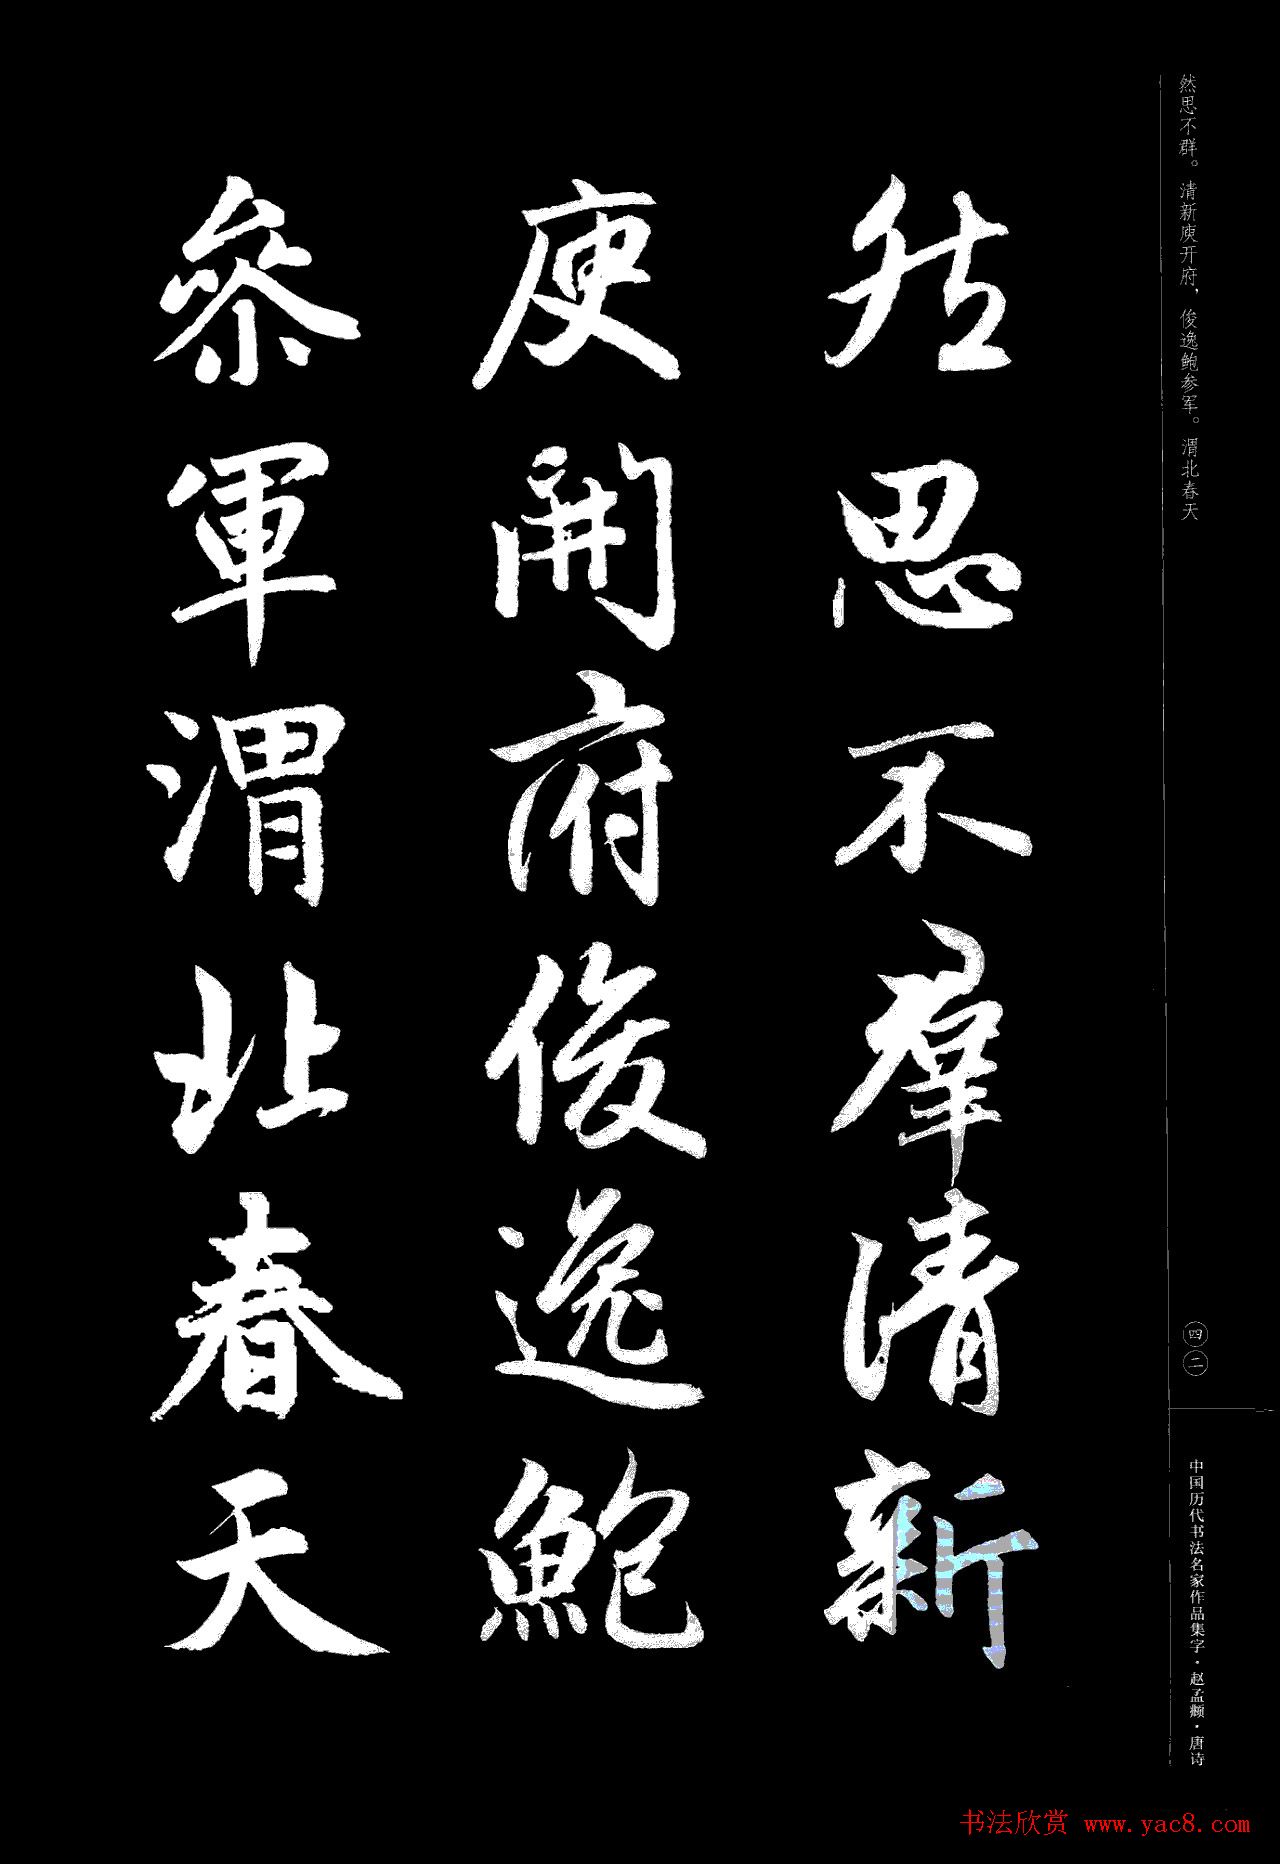 然思不群。清新庾开府，俊逸鲍参军。渭北春天
然思不羣清新
庾開府俊逸鮑
參軍渭北春天
四二
中国历代书法名家作品集字·赵孟頫·唐诗
书法欣赏 www.yac8.com